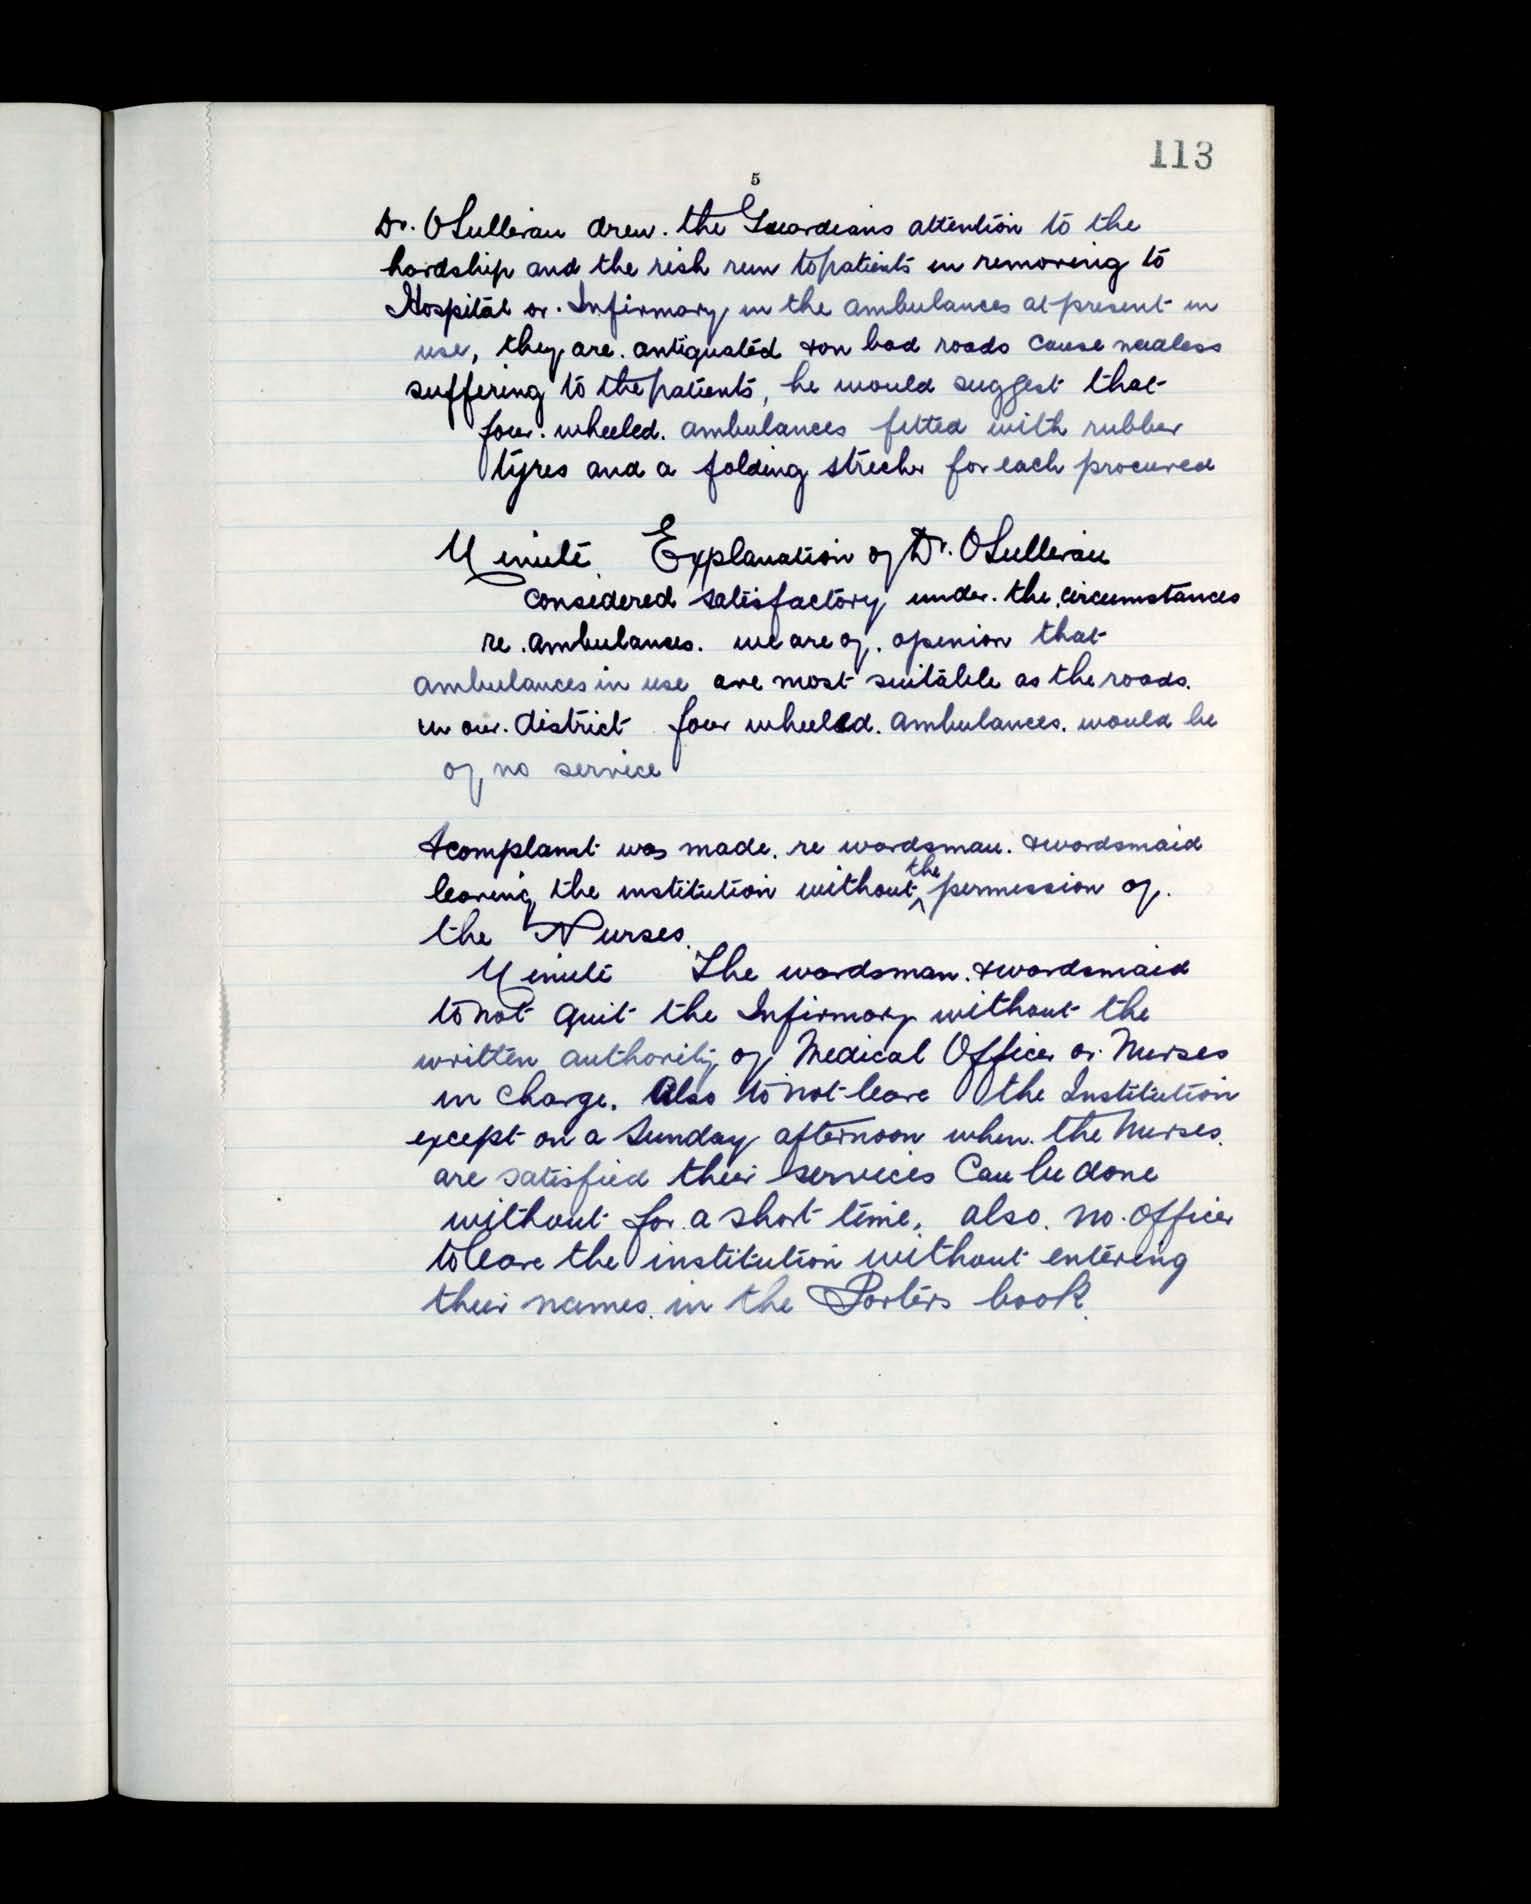 113
5
Dr. OSullivan drew. the Guardians attention to the
hardship and the risk run to patients in removing to
Hospital or. Infirmary in the ambulances at present in
use, they are. antiquated & on bad roads cause needless
suffering to the patients, he would suggest that
four. wheeled. ambulances fitted with rubber
tyres and a folding strecher for each procured
Minute. Explanation of Dr. OSullivan
considered satisfactory under. the. circumstances
re. ambulances. we are of. opinion that
ambulances in use are most suitable as the roads.
in our. district four wheeled. ambulances. would be
of no service
A complant was made. re wardsman. & wardsmaid
leaving the institution without the permission of.
the Nurses.
Minute The wardsman. & wardsmaid
to not quit the Infirmary without the
written authority of Medical Officer or. Nurses
in charge. Also to not leave the Institution
except on a Sunday afternoon when. the Nurses.
are satisfied their services can be done
without for a short time. also. no. officer
to leave the institution without entering
their names. in the Porters book.